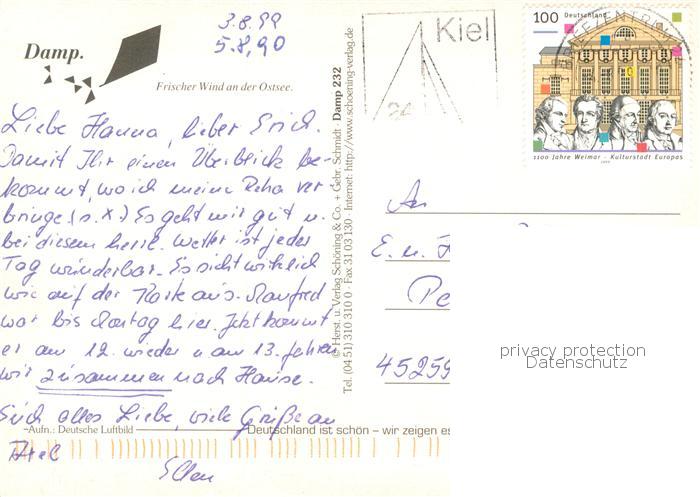 3.8.99
5.8.90
Damp.
Frischer Wind an der Ostsee.
Liebe Hanna, lieber Erich.
Damit Ihr einen Überblick be-
kommt, wo ich meine Reha ver
bringe (s. X) Es geht mir gut u.
bei diesem herrl. Wetter ist jeder
Tag wunderbar. Es sieht wirklich
wie auf der Karte aus. Manfred
war bis Montag hier. Jetzt kommt
er am 12. wieder u am 13. fahren
wir zusammen nach Hause.
Euch alles Liebe, viele Grüße an
Axel
Ellen
Aufn.: Deutsche Luftbild
Deutschland ist schön – wir zeigen es
© Herst. u. Verlag Schöning & Co. + Gebr. Schmidt · Damp 232
Tel. (04 51) 310 310 0 · Fax 31 03 130 · Internet: http://www.schoening-verlag.de
Kiel
24
BRIEFZENTRUM
100 Deutschland
1100 Jahre Weimar · Kulturstadt Europas
1999
An
E. u. H
Pe
45259
privacy protection
Datenschutz